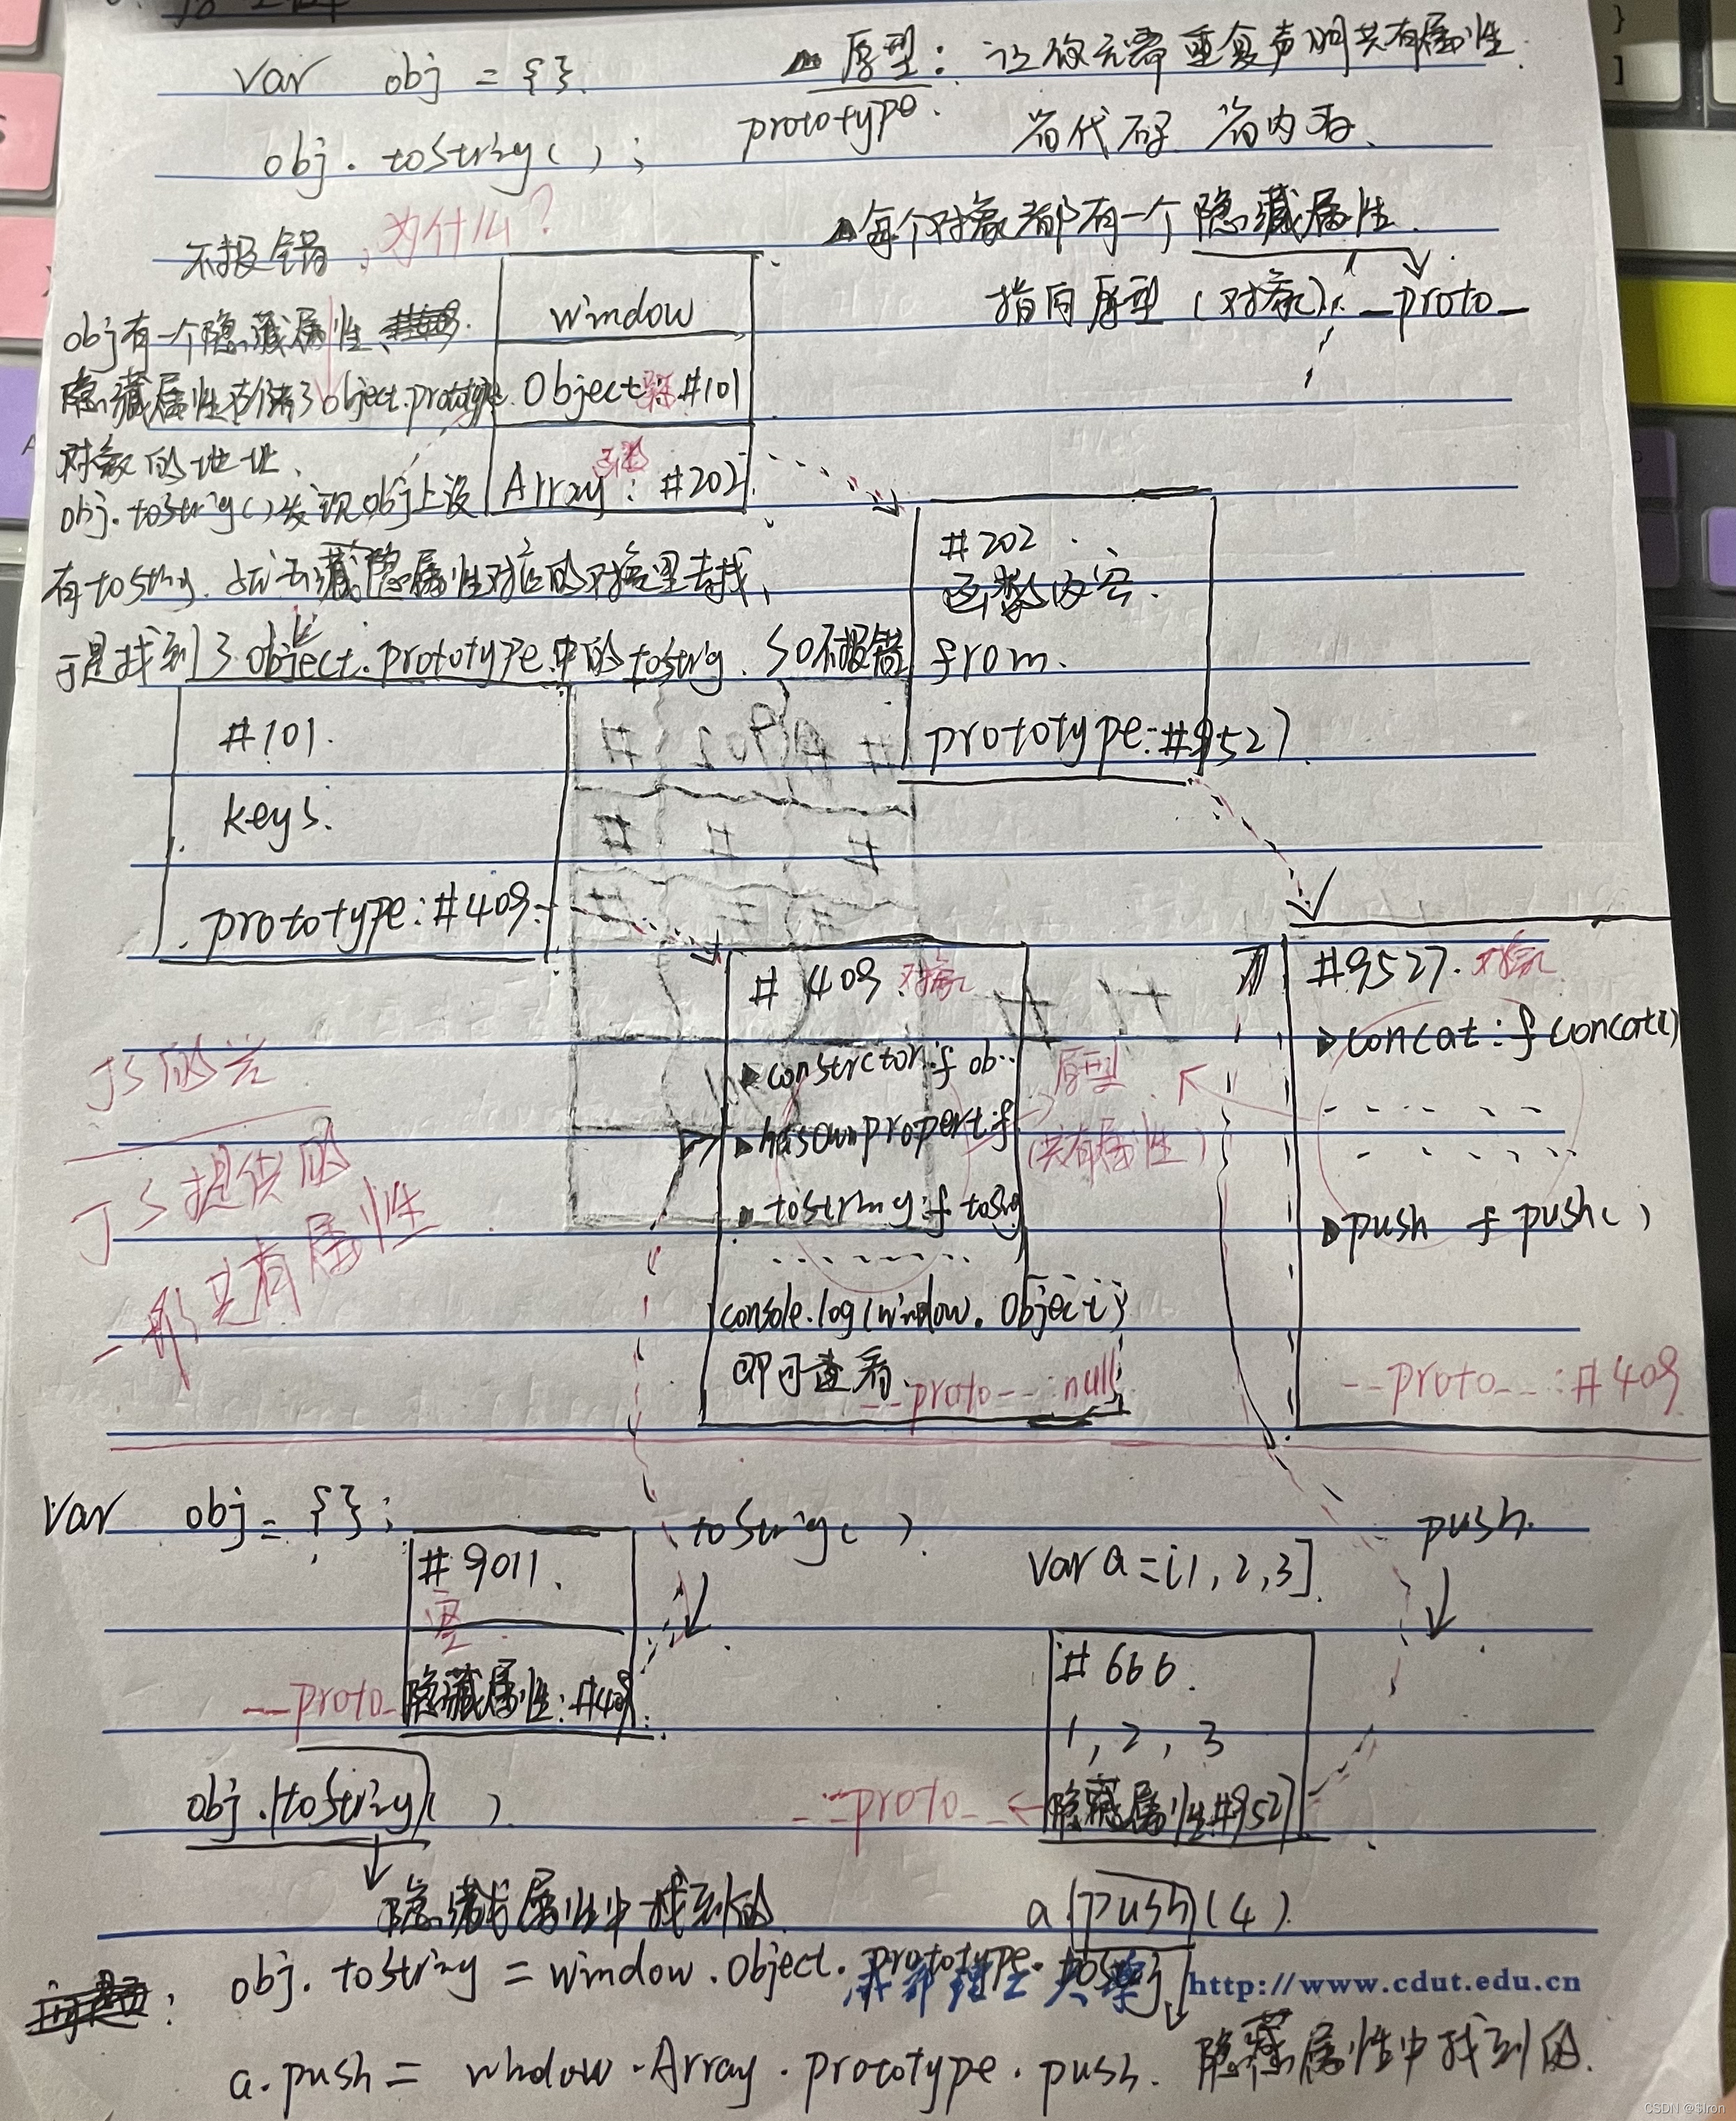 var obj = {}.
obj.toString();
不报错，为什么？
原型：让你无需重复声明共有属性.
prototype.
省代码 省内存、
每个对象都有一个隐藏属性.
指向原型（对象）: __proto__
obj有一个隐藏属性、
隐藏属性存储了object.prototype
对象的地址、
obj.toString()发现obj上没
有toString.
于是找到了object.prototype中的toString. so不报错
window
Object #101
Array : #202
#202
函数内容.
from.
prototype:#9527
#101.
keys.
prototype:#409
# 409 对象
constrctor:f ob..
hasOwnpropert:f
tostring:f
console.log(window.Object)
即可查看
__proto__:null
原型
（共有属性）
#9527. 对象
concat:f concat()
push f push()
__proto__:#409
JS提供的
共有属性
var obj = {};
#9011.
空
__proto__ 隐藏属性:#409
toString()
obj.toString()
隐藏属性中找到的
push.
var a=[1,2,3]
#666.
1, 2, 3
__proto__ 隐藏属性#9527
a.push(4)
隐藏属性中找到的.
obj.toString = window.Object.prototype.
a.push = window.Array.prototype.push.
http://www.cdut.edu.cn
CSDN @$Iron